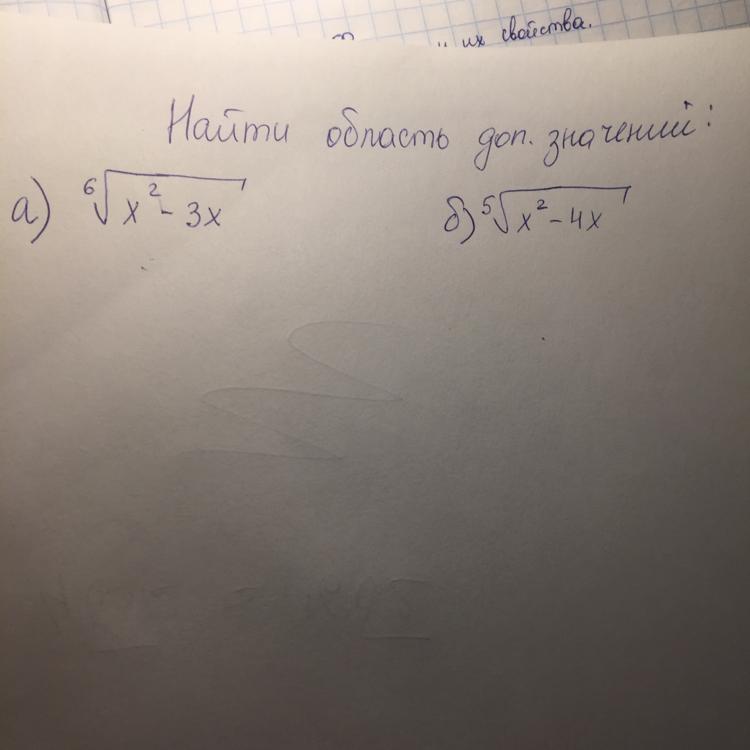 и их свойства.
Найти область доп. значений:
а) ⁶√(x² - 3x) б) ⁵√(x² - 4x)